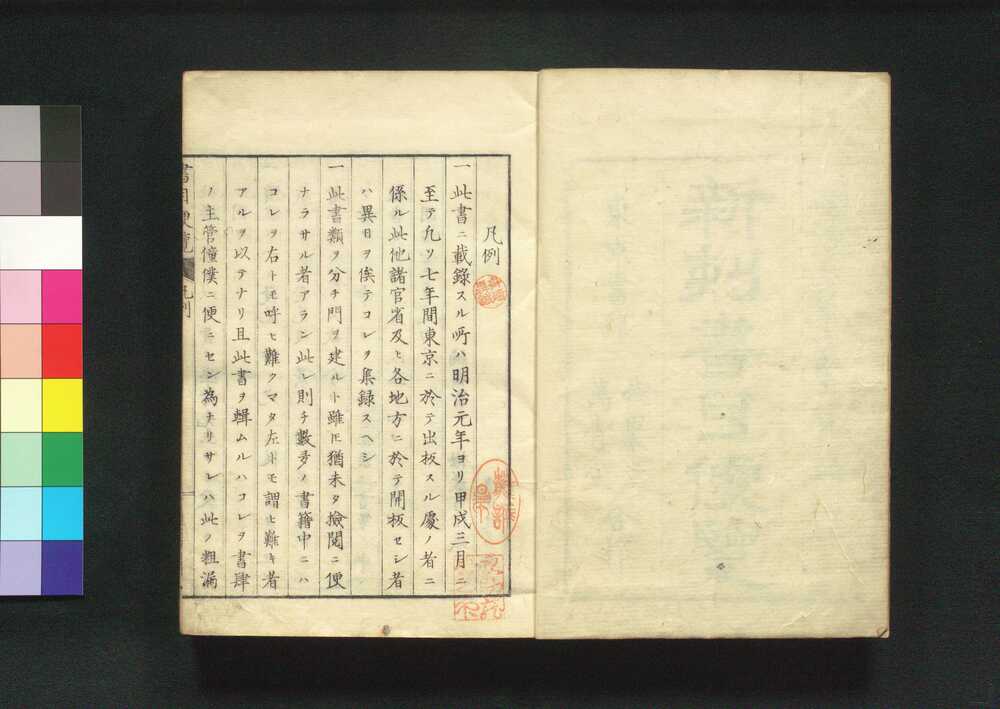 凡例
一此書ニ載錄スル所ハ明治元年ヨリ甲戌三月ニ
至テ凡ソ七年間東京ニ於テ出板スル處ノ者ニ
係ル此他諸官省及ヒ各地方ニ於テ開板セシ者
ハ異日ヲ俟テコレヲ集録スヘシ
一此書類ヲ分チ門ヲ建ルト雖𪜈猶未タ撿閲ニ便
ナラサル者アラン此レ則チ數多ノ書籍中ニハ
コレヲ右トモ呼ヒ難クマタ左トモ謂ヒ難キ者
アルヲ以テナリ且此書ヲ輯ムルハコレヲ書肆
ノ主管僮僕ニ便ニセン為ナリサレハ此ノ粗漏
書目便覽 凡例